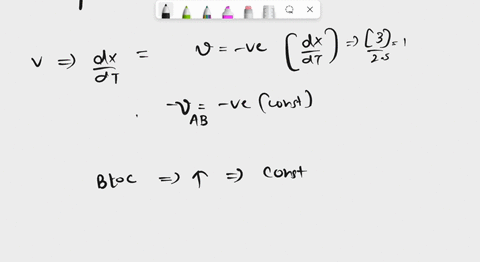 v => dx/dT = v = -ve [dx/dT] => [3]/2.5 = 1
-v_AB = -ve (const)
B to C => ↑ => const